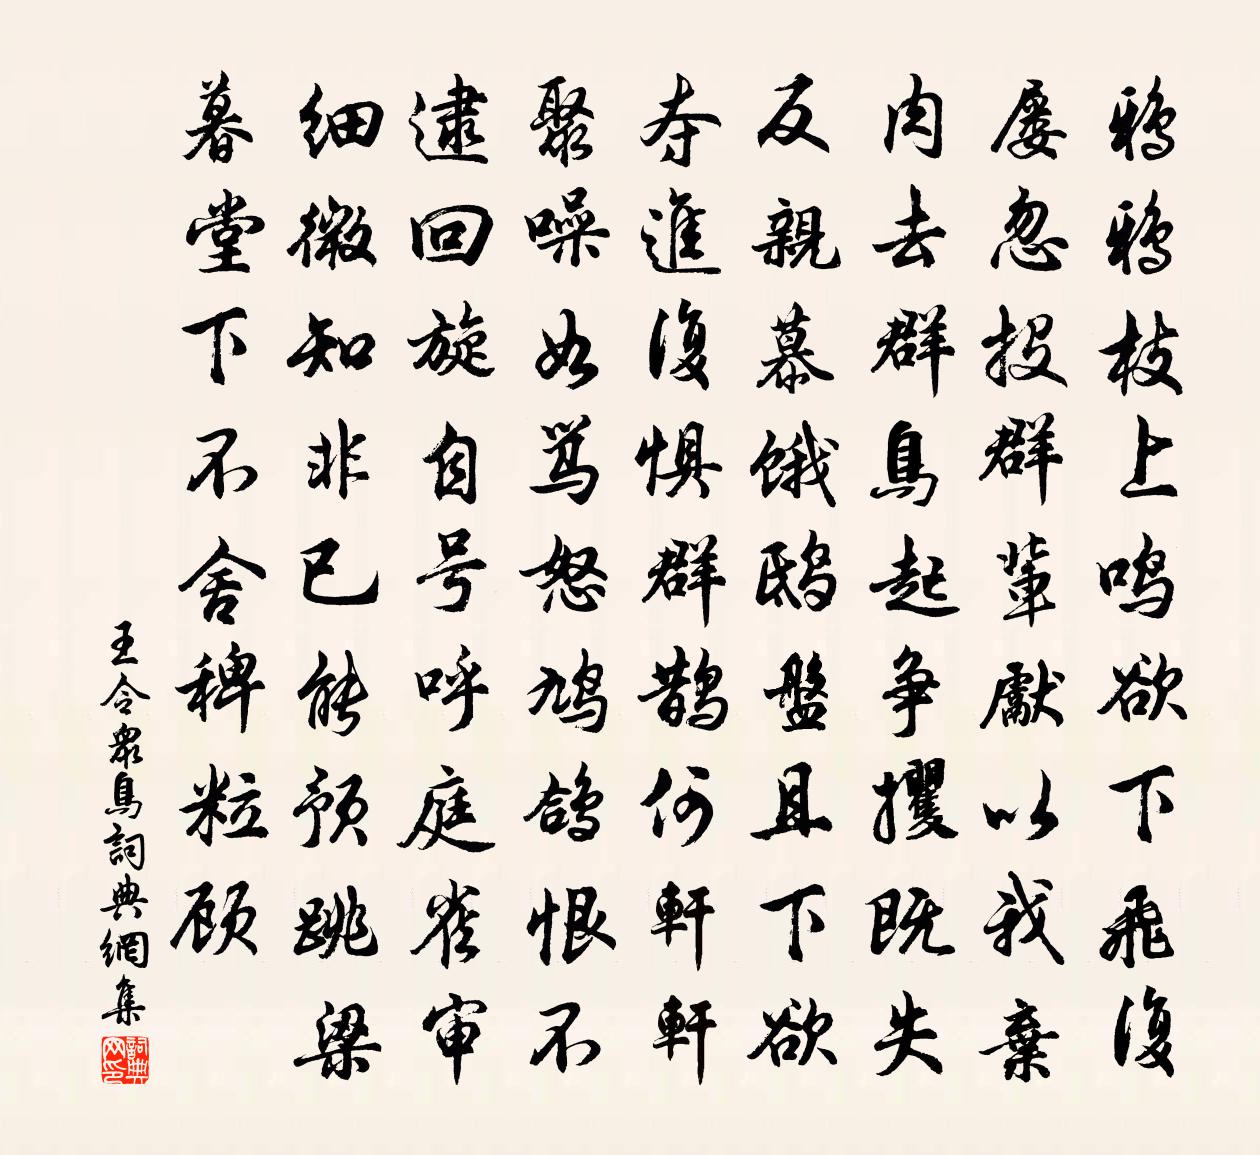 鴉鴉枝上鸣欲下飛復
屡忽投群輩獻以我棄
肉去群鳥起争攫既失
反親慕餓鴟盤且下欲
夺進復惧群鹊何軒軒
聚噪如骂怒鳩鴿恨不
逮回旋自号呼庭雀审
細微知非已能預跳梁
暮堂下不舍稗粒顾
王令衆鳥詞典網集
詞典网